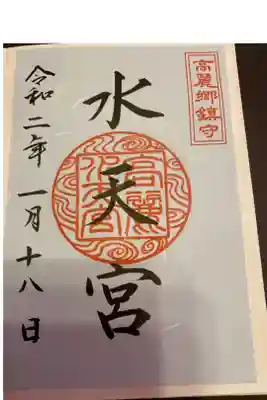 高麗郷鎮守
水天宮
令和二年一月十八日